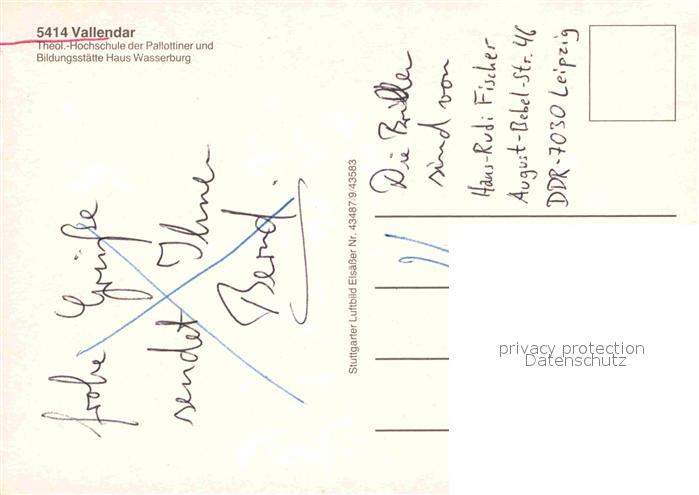 5414 Vallendar
Theol.-Hochschule der Pallottiner und
Bildungsstätte Haus Wasserburg
frohe Grüße
sendet Ihnen
Bernd.
Stuttgarter Luftbild Elsäßer Nr. 43487/9/43583
Die Bilder
sind von
Hans-Rudi Fischer
August-Bebel-Str. 46
DDR-7030 Leipzig
privacy protection
Datenschutz